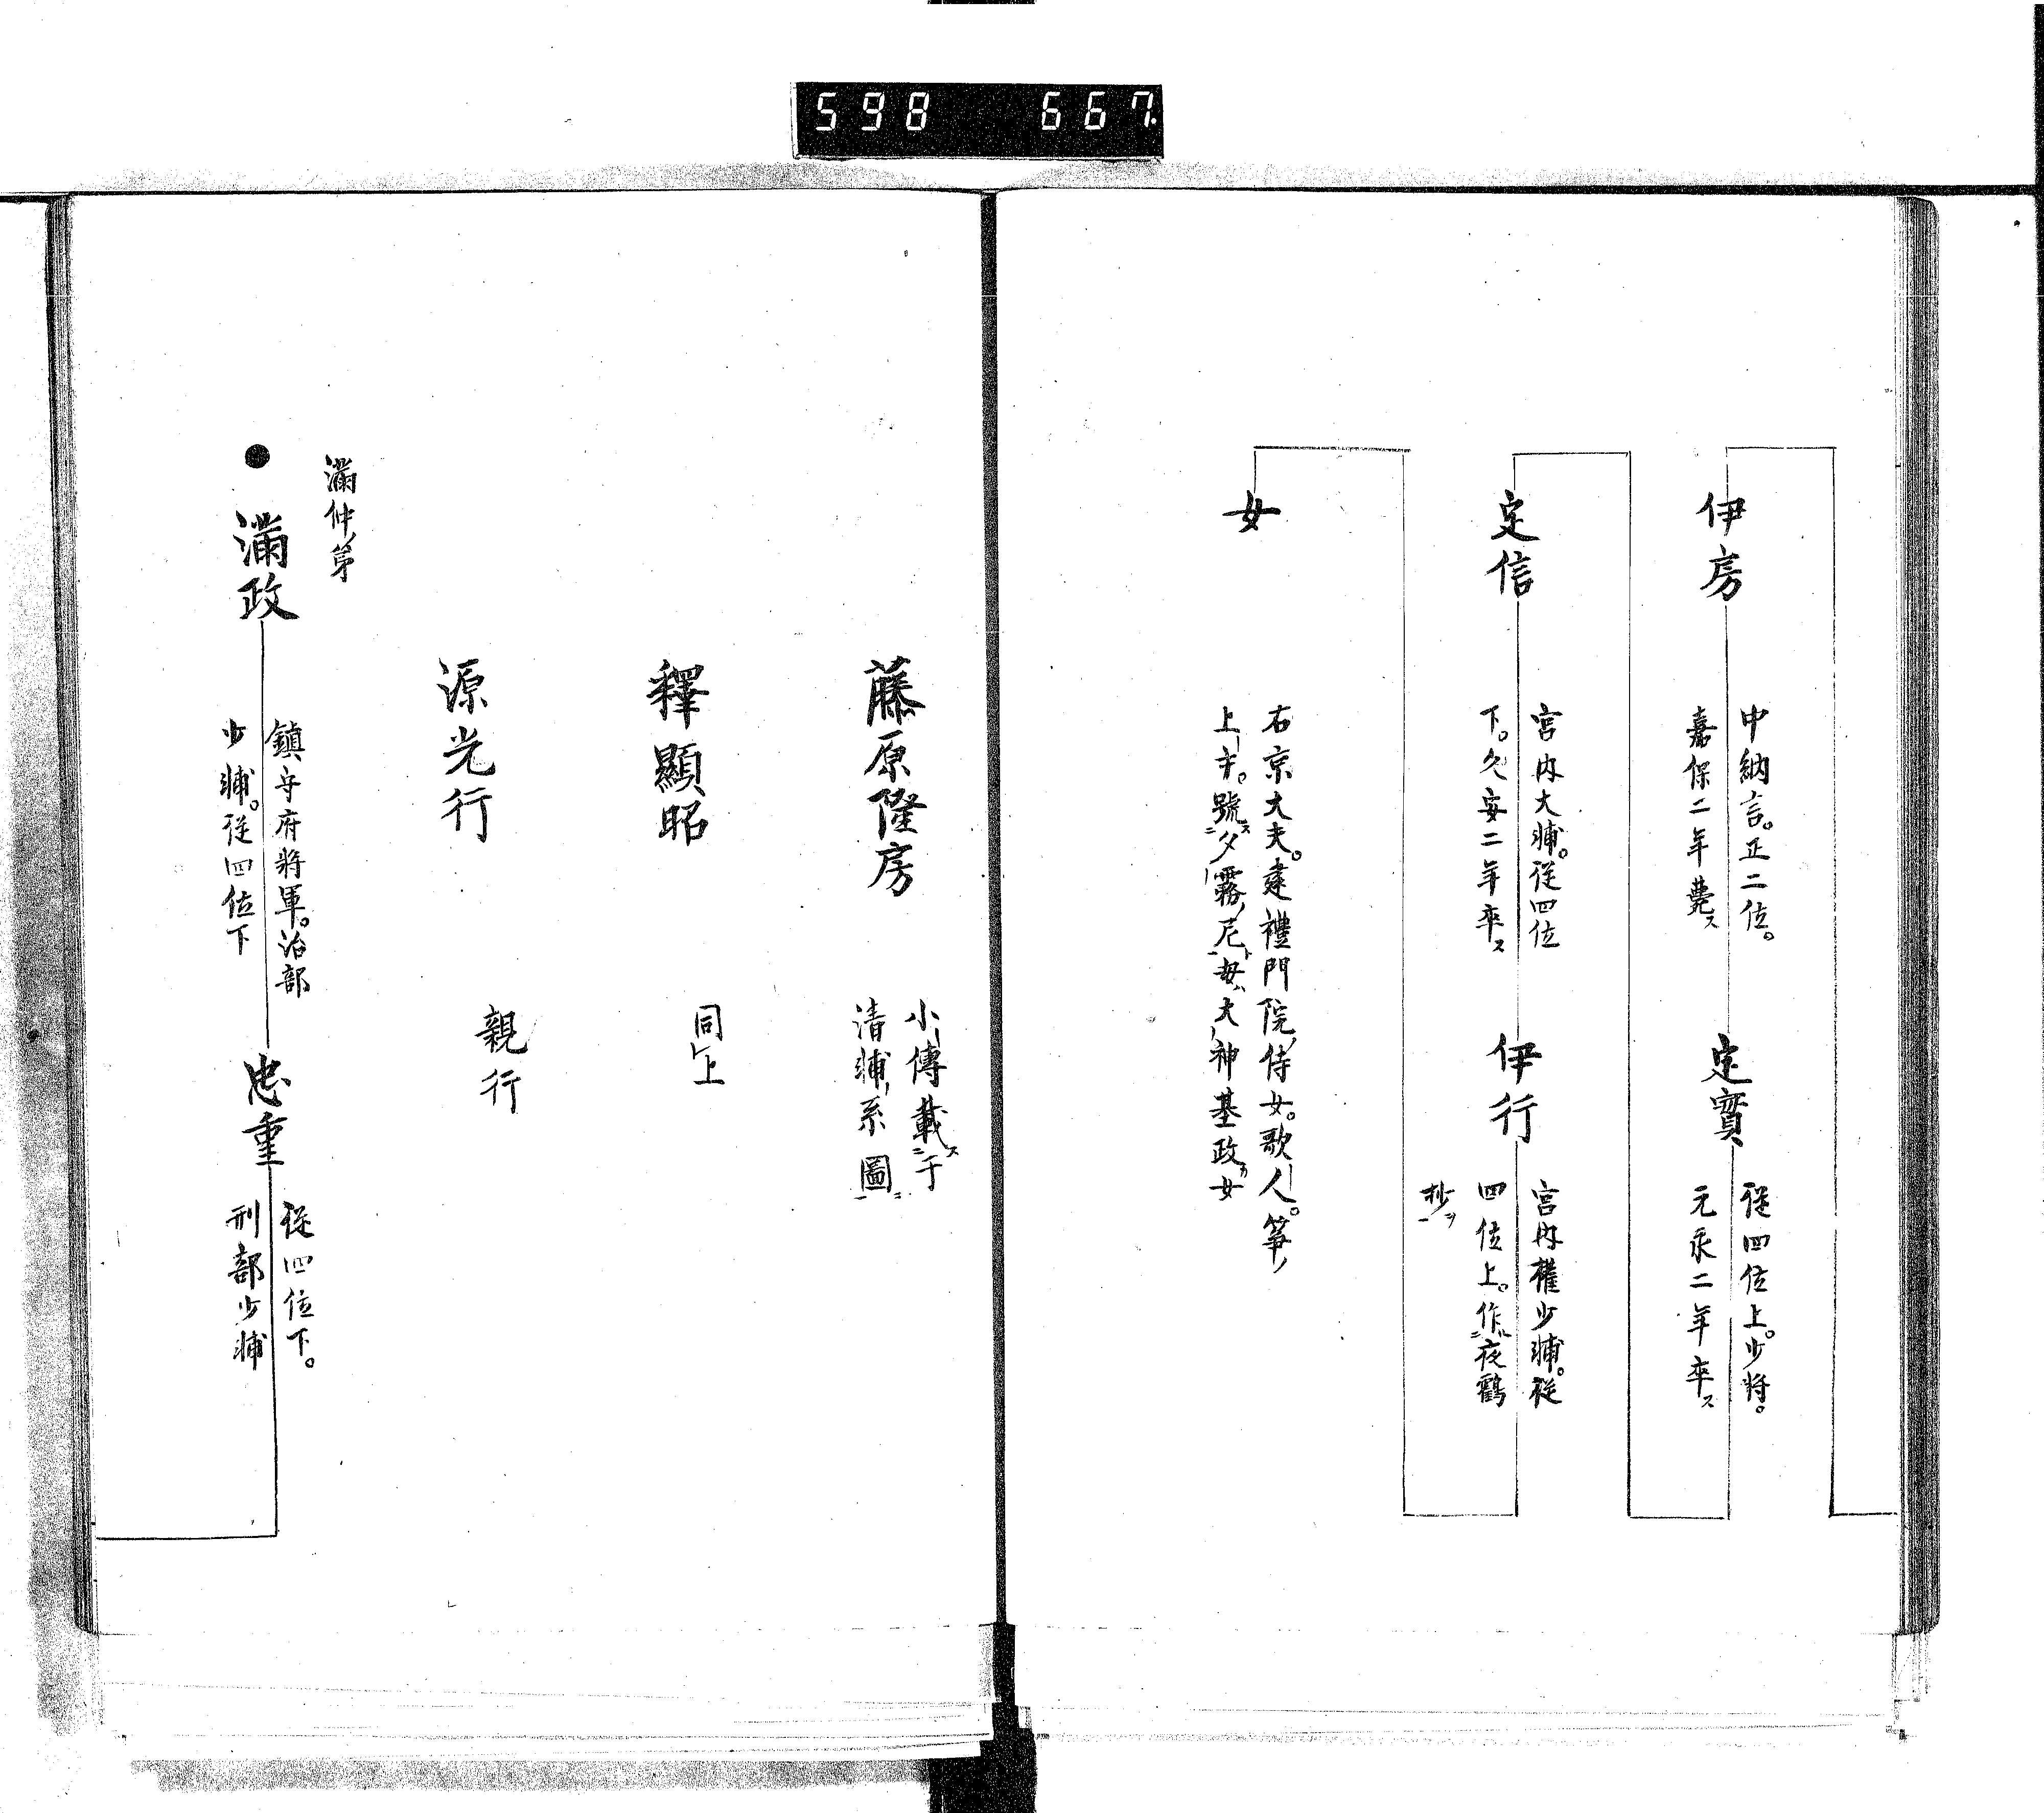 598 667.
伊房
中納言。正二位。
嘉保二年薨ス
定實
從四位上。少將。
元永二年卒ス
定信
宮内大輔。從四位
下。久安二年卒ス
伊行
宮内權少輔。從
四位上。作ル夜鶴
抄ヲ
女
右京大夫。建禮門院ノ侍女。歌人。箏ノ
上手。號ス夕霧ノ尼ト母ハ大神基政カ女
藤原隆房
小傳載ス于
清輔ノ系圖ニ
釋顯昭
同上
源光行
親行
滿仲ノ弟
●滿政
鎮守府將軍。治部
少輔。從四位下
忠重
從四位下。
刑部少輔